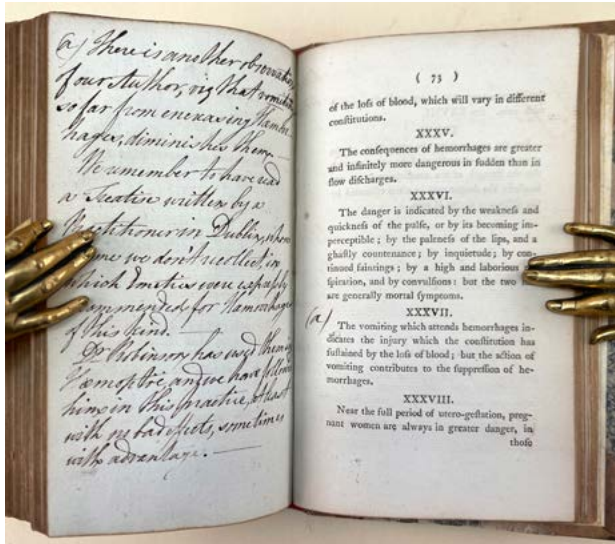 (a) There is another observation
of our Author, viz that vomiting
so far from encreasing Hæmorr-
hages, diminishes them. —
We remember to have read
a Treatise written by a
Practitioner in Dublin, whose
name we don't recollect, in
which Emetics were expressly
recommended for Hæmorrhages
of this kind. —
Dr Robinson has used them in
Hæmoptoe, and we have followed
him in this practice, at least
with no bad effects, sometimes
with advantage. —
( 73 )
of the loſs of blood, which will vary in different
conſtitutions.
XXXV.
The conſequences of hemorrhages are greater
and infinitely more dangerous in ſudden than in
ſlow diſcharges.
XXXVI.
The danger is indicated by the weakneſs and
quickneſs of the pulſe, or by its becoming im-
perceptible ; by the paleneſs of the lips, and a
ghaſtly countenance ; by inquietude ; by con-
tinued faintings ; by a high and laborious
ſpiration, and by convulſions : but the two
are generally mortal ſymptoms.
(a)
XXXVII.
The vomiting which attends hemorrhages in-
dicates the injury which the conſtitution has
ſuſtained by the loſs of blood ; but the action of
vomiting contributes to the ſuppreſſion of he-
morrhages.
XXXVIII.
Near the full period of utero-geſtation, preg-
nant women are always in greater danger, in
thoſe